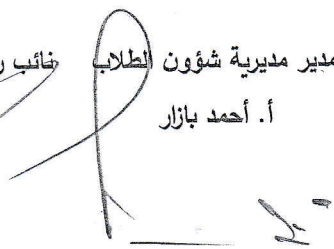 مدير مديرية شؤون الطلاب نائب
أ. أحمد بازار